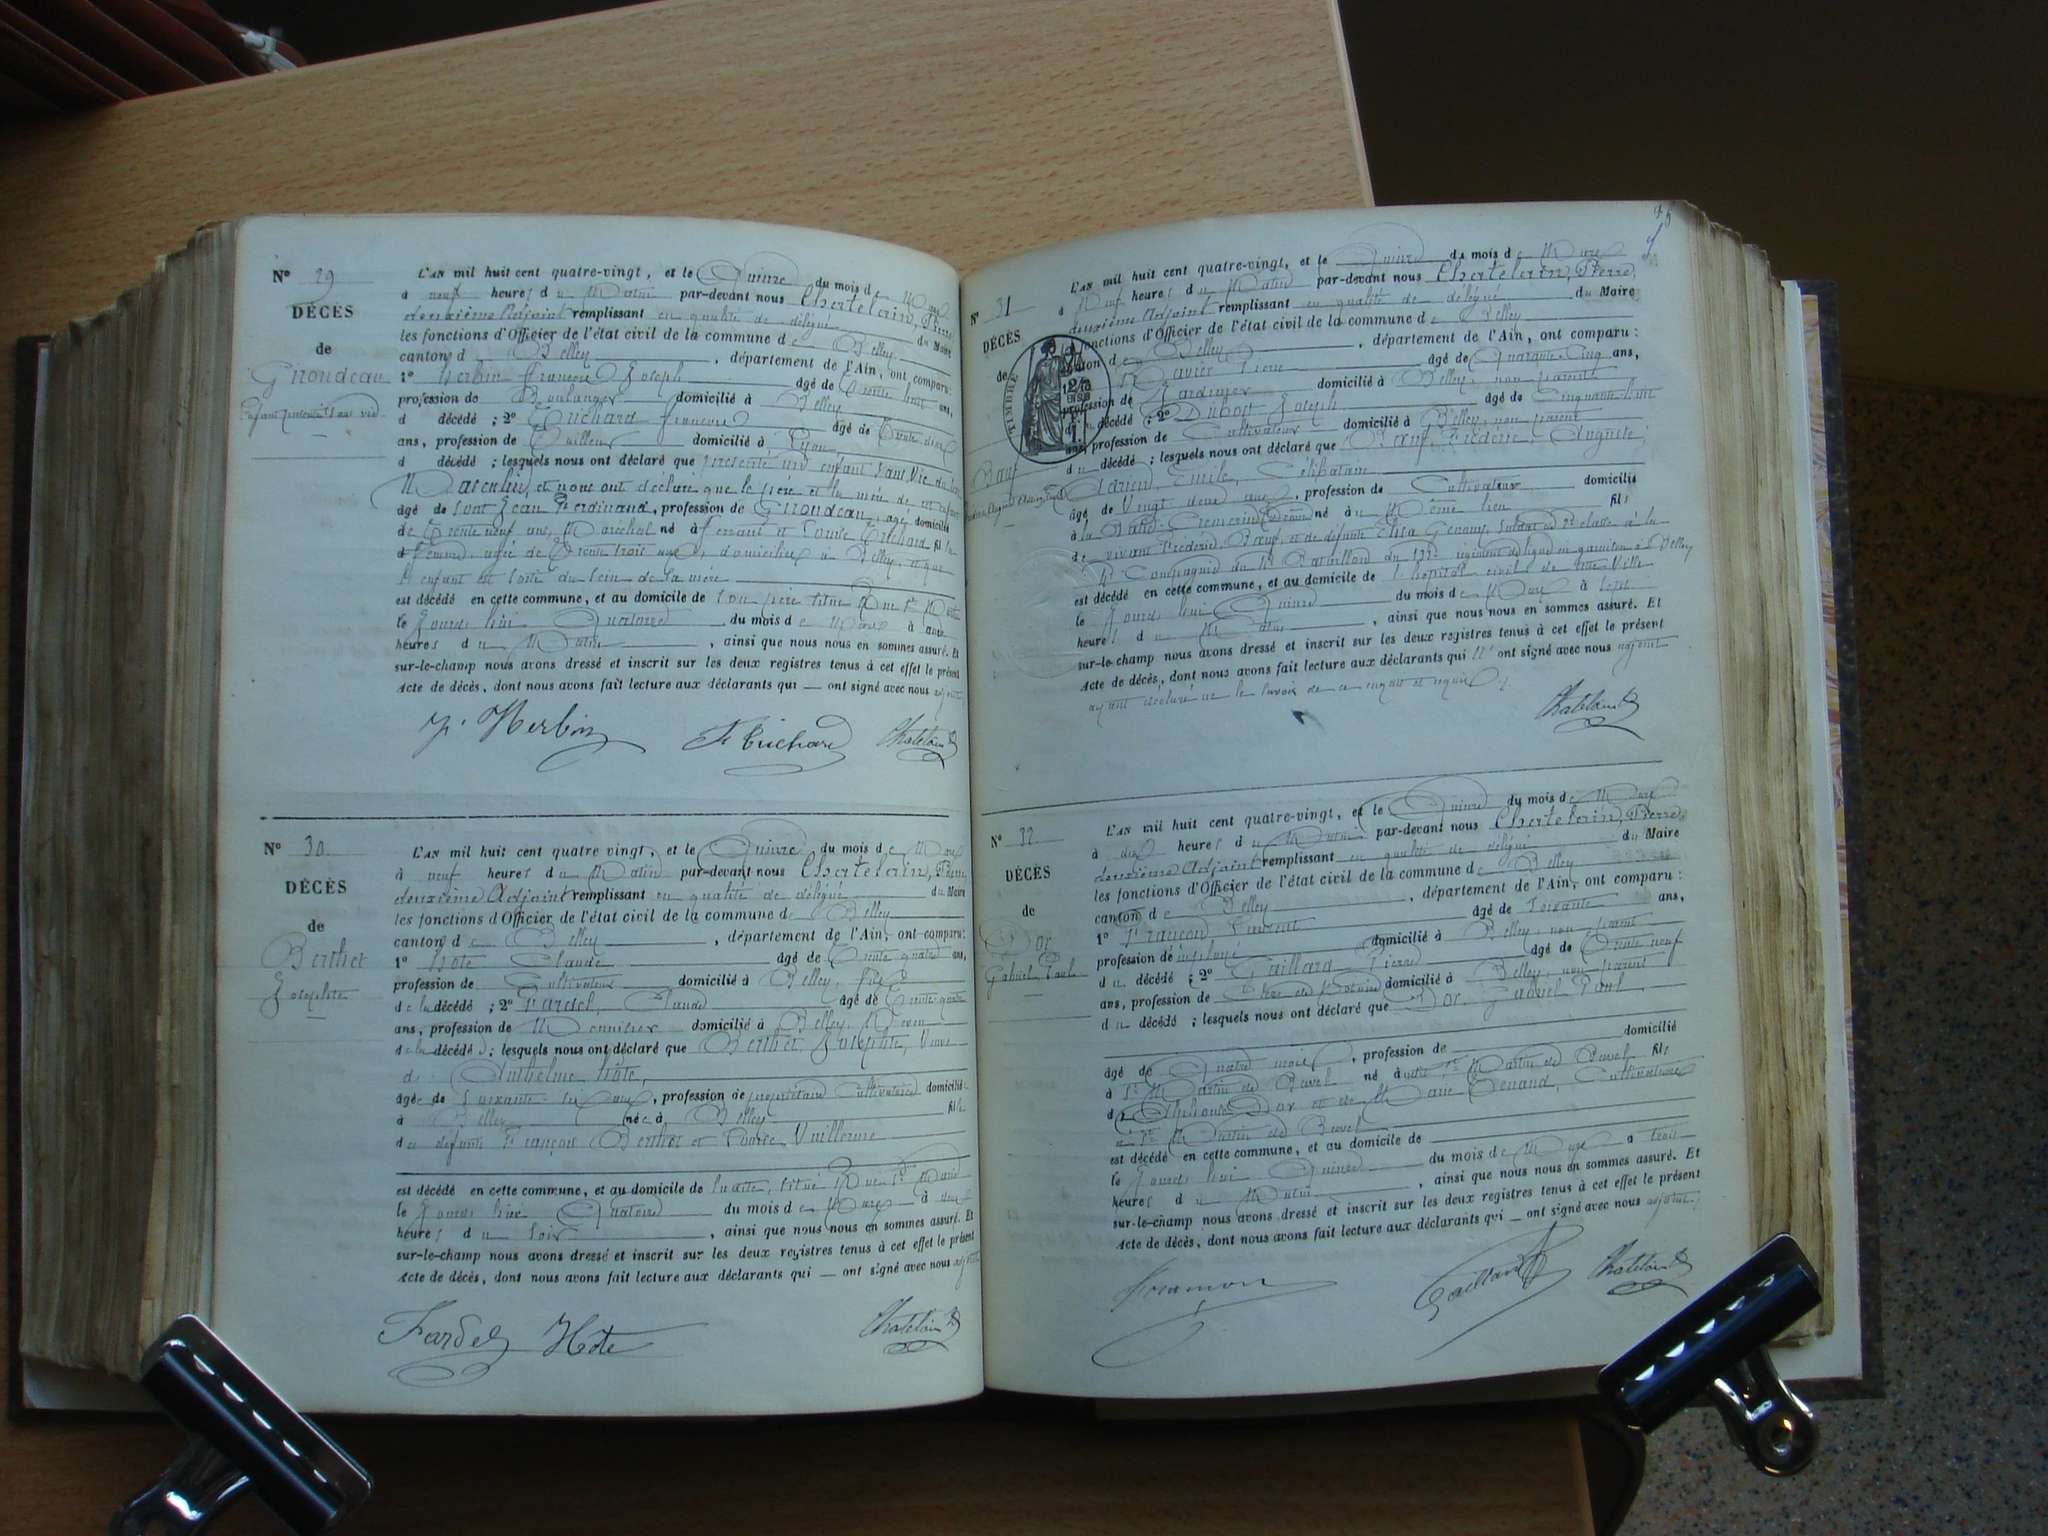 N° 29
DÉCÈS
de
Girondeau
Enfant présenté sans vie
L'AN mil huit cent quatre-vingt, et le Quinze du mois de Mars
à neuf heures du Matin par-devant nous Chatelain, Pierre,
deuxième Adjoint remplissant en qualité de délégué du Maire
les fonctions d'Officier de l'état civil de la commune de Belley
canton d Belley, département de l'Ain, ont comparu:
1° Herbin François Joseph âgé de trente huit ans,
profession de Boulanger domicilié à Belley
d décédé ; 2° Trichard François âgé de trente deux
ans, profession de Tailleur domicilié à Lyon
d décédé ; lesquels nous ont déclaré que présenté un enfant sans Vie du sexe
Masculin, et nous ont déclaré que le père et la mère de cet enfant
âgé de sont Jean Ferdinand, profession de Girondeau, agé domicilié
de trente neuf ans, Maréchal né à ferrant et Louise Trichard fils
d femme, agée de trente trois ans, domiciliés à Belley, et que
l'enfant est sorti du sein de la mère
est décédé en cette commune, et au domicile de son père situé Rue
le Jourd'hui Quatorze du mois de Mars à
heures du Matin, ainsi que nous nous en sommes assuré. Et
sur-le-champ nous avons dressé et inscrit sur les deux registres tenus à cet effet le présent
Acte de décès, dont nous avons fait lecture aux déclarants qui — ont signé avec nous adjoint
Herbin F Trichard Chatelain
N° 30
DÉCÈS
de
Berthet
Josephte
L'AN mil huit cent quatre vingt, et le Quinze du mois de Mars
à neuf heures du Matin par-devant nous Chatelain, Pierre,
deuxième Adjoint remplissant en qualité de délégué du Maire
les fonctions d'Officier de l'état civil de la commune de Belley
canton de Belley, département de l'Ain, ont comparu:
1° Hote Claude âgé de trente quatre ans,
profession de Cultivateur domicilié à Belley, fils
de la décédé ; 2° Fardel, Claude âgé de trente quatre
ans, profession de Mennisier domicilié à Belley, Neveu
de la décédé ; lesquels nous ont déclaré que Berthet, Josephte, Veuve
de Anthelme Hôte,
âgée de soixante six ans, profession de propriétaire Cultivatrice domicilié
à Belley née à Belley fille
de défunts François Berthet et Louise Vuillerme
est décédé en cette commune, et au domicile de sa situé Rue
le Jourd'hui Quatorze du mois de Mars à neuf
heures du soir, ainsi que nous nous en sommes assuré. Et
sur-le-champ nous avons dressé et inscrit sur les deux registres tenus à cet effet le présent
Acte de décès, dont nous avons fait lecture aux déclarants qui — ont signé avec nous adjoint
Fardel Hote Chatelain
N° 31
DÉCÈS
de
TIMBRE
Bauf
L'AN mil huit cent quatre-vingt, et le Quinze du mois de Mars
à Neuf heures du Matin par-devant nous Chatelain, Pierre,
deuxième Adjoint remplissant en qualité de délégué du Maire
les fonctions d'Officier de l'état civil de la commune de Belley
canton de Belley, département de l'Ain, ont comparu:
1° Pierre âgé de Quarante-Cinq ans,
profession de Jardinier domicilié à Belley, non parent
du décédé ; 2° Dubost Joseph âgé de Cinquante huit
ans, profession de Cultivateur domicilié à Belley, non parent
du décédé ; lesquels nous ont déclaré que Bauf, Frédéric Auguste,
Adrien, Emile, Célibataire
âgé de Vingt deux ans, profession de Cultivateur domicilié
à la né au Même lieu fils
de vivant Frédéric Bauf et de défunte Elisa Genoux, soldat de 2e classe à la
4e Compagnie du 4e Bataillon du 133e régiment de ligne en garnison à Belley
est décédé en cette commune, et au domicile de l'hopital civil de cette Ville
le Jourd'hui Quinze du mois de Mars à sept
heures du Matin, ainsi que nous nous en sommes assuré. Et
sur-le-champ nous avons dressé et inscrit sur les deux registres tenus à cet effet le présent
Acte de décès, dont nous avons fait lecture aux déclarants qui n'ont signé avec nous adjoint
ayant déclaré ne le savoir de ce enquis et requis
Chatelain
N° 32
DÉCÈS
de
Dor
Gabriel Paul
L'AN mil huit cent quatre-vingt, et le Quinze du mois de Mars
à dix heures du Matin par-devant nous Chatelain, Pierre,
deuxième Adjoint remplissant en qualité de délégué du Maire
les fonctions d'Officier de l'état civil de la commune de Belley
canton de Belley, département de l'Ain, ont comparu:
1° Laurent âgé de soixante ans,
profession d'employé domicilié à Belley, non parent
du décédé ; 2° Gaillard Pierre âgé de trente neuf
ans, profession de Clerc de Notaire domicilié à Belley, non parent
du décédé ; lesquels nous ont déclaré que Dor Gabriel Paul
âgé de Quatre mois, profession de domicilié
à St Martin de Bavel né à St Martin de Bavel fils
de Alphonse Dor et de Marie Tenand, Cultivateurs
à St Martin de Bavel
est décédé en cette commune, et au domicile de
le Jourd'hui Quinze du mois de Mars à trois
heures du Matin, ainsi que nous nous en sommes assuré. Et
sur-le-champ nous avons dressé et inscrit sur les deux registres tenus à cet effet le présent
Acte de décès, dont nous avons fait lecture aux déclarants qui — ont signé avec nous adjoint
Gaillard Chatelain